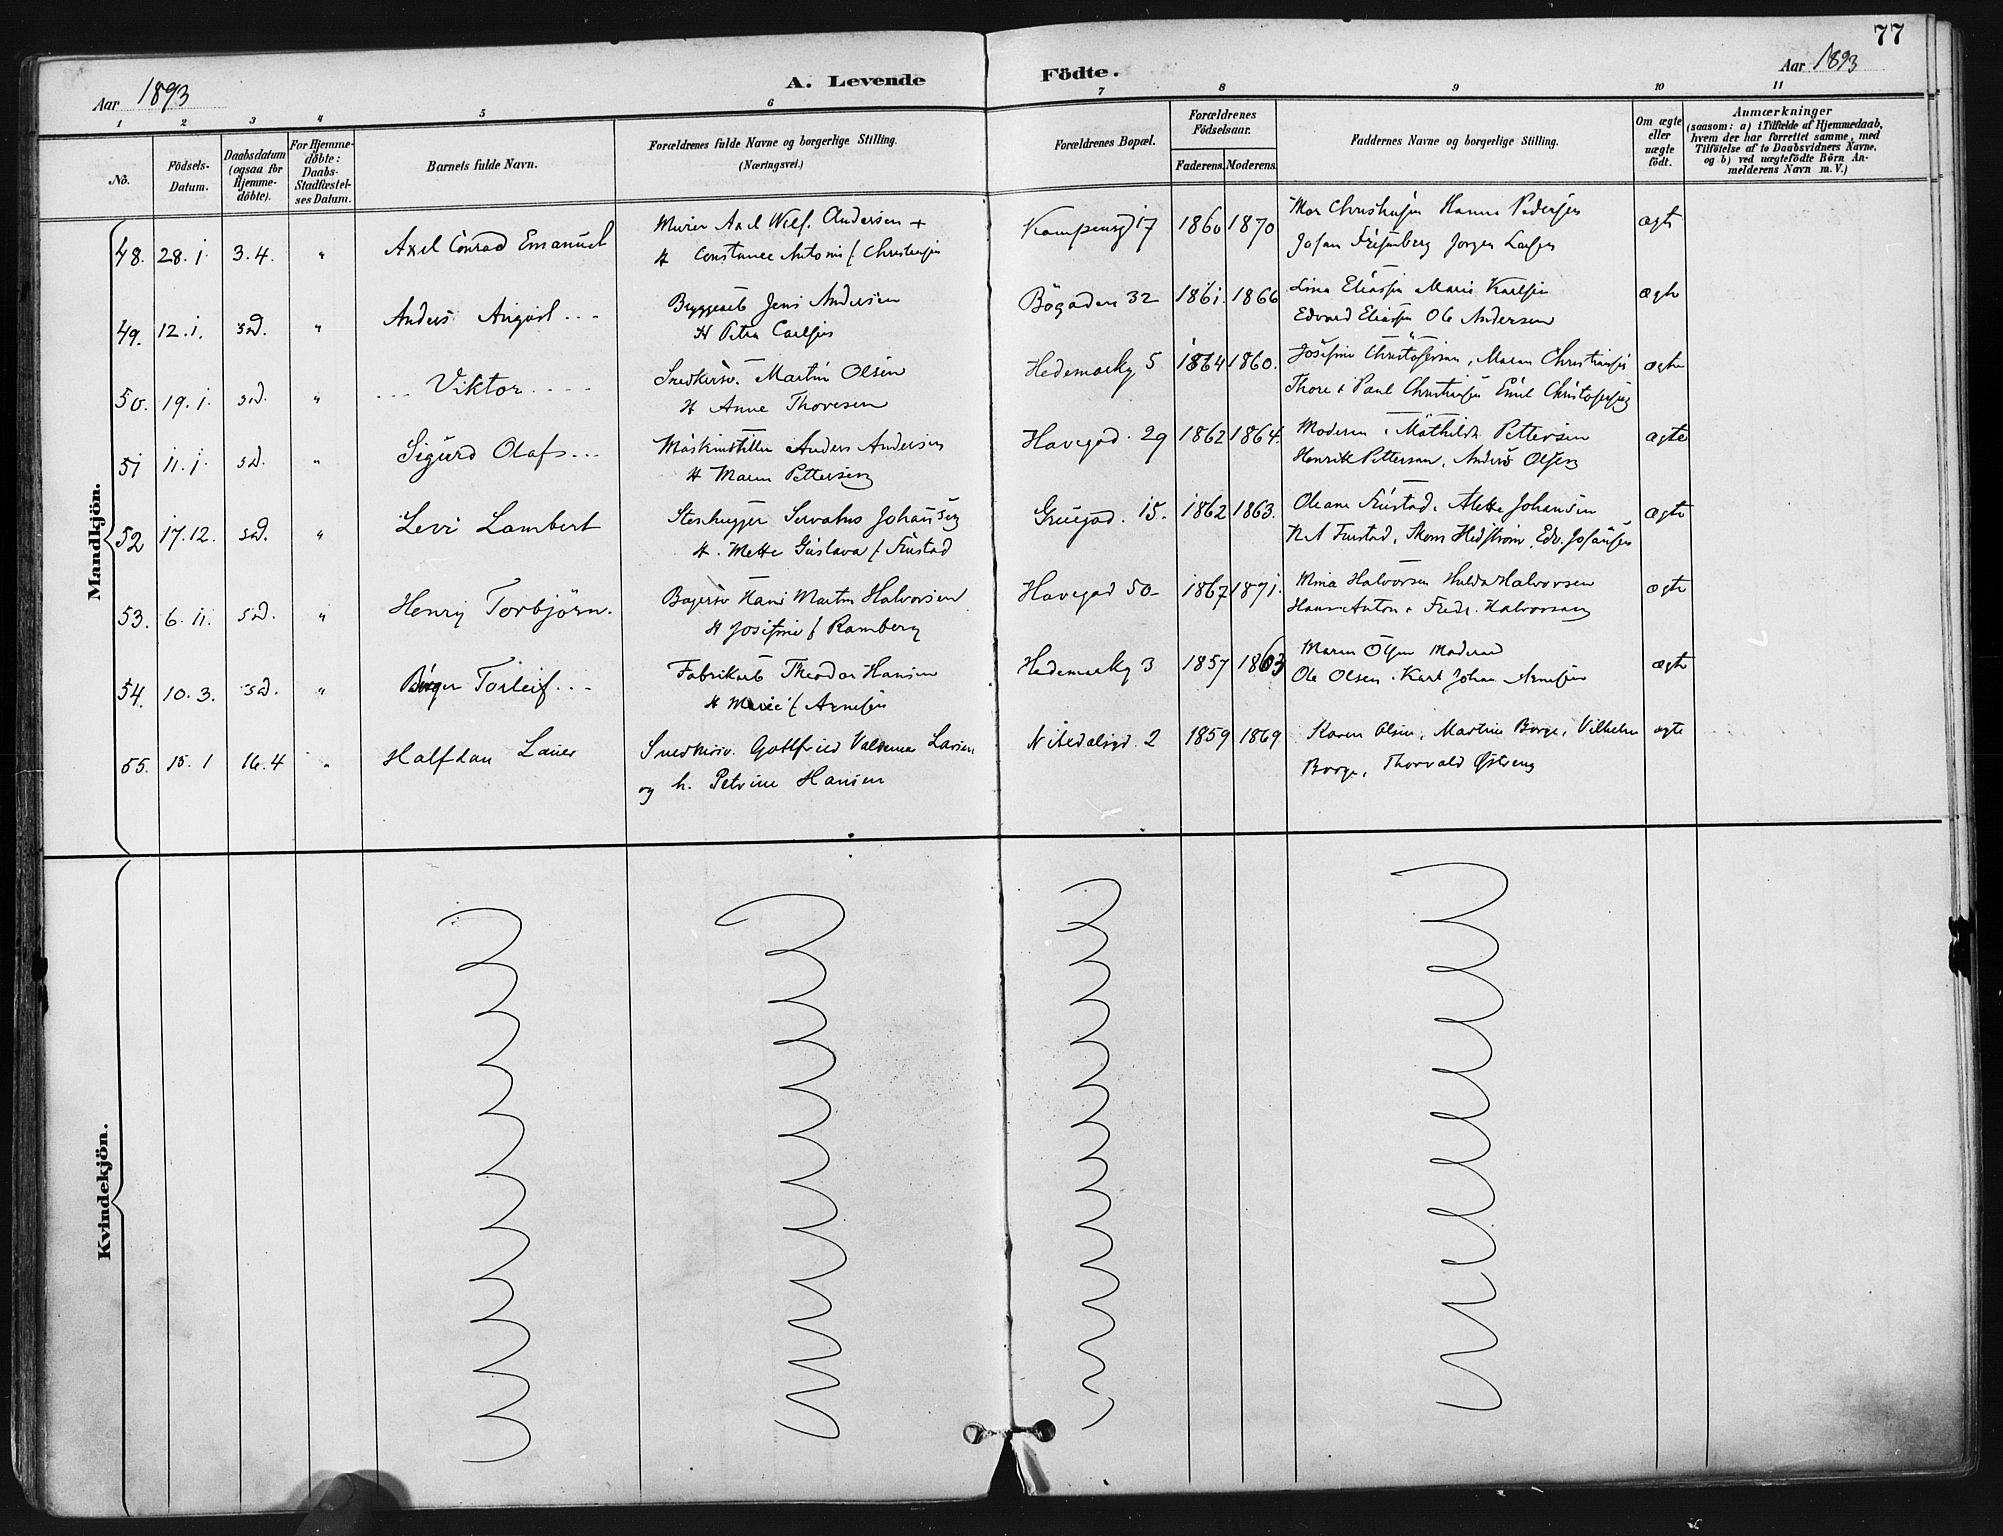 77
Aar 1893
A. Levende Födte.
Aar 1893
1 2 3 4 5 6 7 8 9 10 11
No.
Födsels-Datum.
Daabsdatum (ogsaa for Hjemme-döbte).
For Hjemme-döbte: Daabs-Stadfæstel-ses Datum.
Barnets fulde Navn.
Forældrenes fulde Navne og borgerlige Stilling.
(Næringsvei.)
Forældrenes Bopæl.
Forældrenes Födselsaar.
Faderens. Moderens.
Faddernes Navne og borgerlige Stilling.
Om ægte eller uægte födt.
Anmærkninger
(saasom: a) i Tilfælde af Hjemmedaab, hvem der har forrettet samme, med Tilföielse af to Daabsvidners Navne, og b) ved uægtefödte Börn An-melderens Navn m. V.)
Mandkjön.
48. 28.1. 3.4. " Axel Conrad Emanuel Murer Axel Wilh. Andersen + 1860 1870 Hanna Pedersen ægte
H Constance f. Christensen
49. 12.1. sad. " Anders August Jens Andersen Bögaden 32 1861. 1866 Lina Eliassen Marie Karlsen ægte
H Petra Carlsen Edvard Eliassen Ole Andersen
50. 19.1. sad. " Viktor Snedkersv. Martin Olsen Hedemarkg 5 1864 1860. Josefine Christofersen, Maren Christiansen ægte
H Anne Thoresen Thore & Paul Christiansen Emil Christofersen
51 11.1. sad. " Sigurd Olaf Maskinstiller Anders Andersen Havegad. 29 1862 1864. Moderen, Mathilde Pettersen ægte
H Maren Pettersen Henrik Pettersen, Anders Olsen
52 17.12. sad. " Levi Lambert Stenhugger Johansen 15. 1862 1863. Oleane Frustad, Alette Johansen ægte
H. Mette Gustava f. Frustad Hedström, Edv. Johansen
53. 6.11. sad. " Henry Torbjörn. Hans Martin Halvorsen Havegad 50 1867 1871. Mina Halvorsen Hulda Halvorsen ægte
H Josefine f Ramberg Hans Anton & Fredr. Halvorsen
54. 10.3. sad. " Birger Torleif Fabrikarb Theodor Hansen Hedemarkg 3 1857 1863 Maren Olsen Moderen ægte
H Marie f Arnesen Ole Olsen. Karl Johan Arnesen
55. 15.1 16.4 " Halfdan Snedkersv. Gottfried Valdemar Larsen Nitedalsgd. 2 1859 1869 Karen Olsen, Martine Borge, Vilhelm ægte
og h. Petrine Hansen Borge, Thorvald Østreng
Kvindekjön.